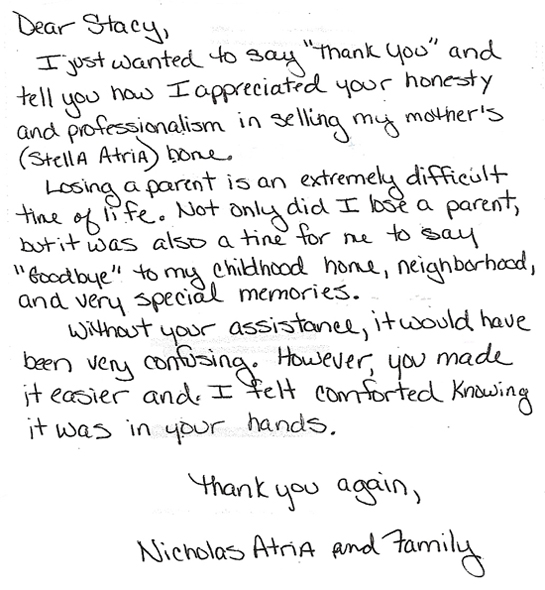 Dear Stacy,
I just wanted to say "Thank You" and
tell you how I appreciated your honesty
and professionalism in selling my mother's
(Stella Atria) home.
Losing a parent is an extremely difficult
time of life. Not only did I lose a parent,
but it was also a time for me to say
"Goodbye" to my childhood home, neighborhood,
and very special memories.
Without your assistance, it would have
been very confusing. However, you made
it easier and I felt comforted knowing
it was in your hands.
Thank you again,
Nicholas Atria and Family